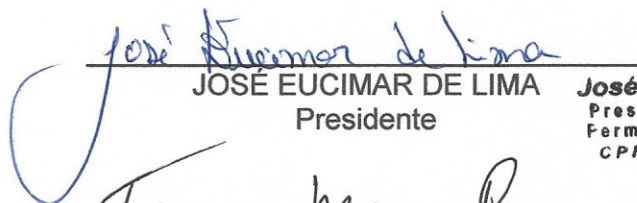 José Eucimar de Lima
JOSÉ EUCIMAR DE LIMA
Presidente
José
Pres
Ferm
CP